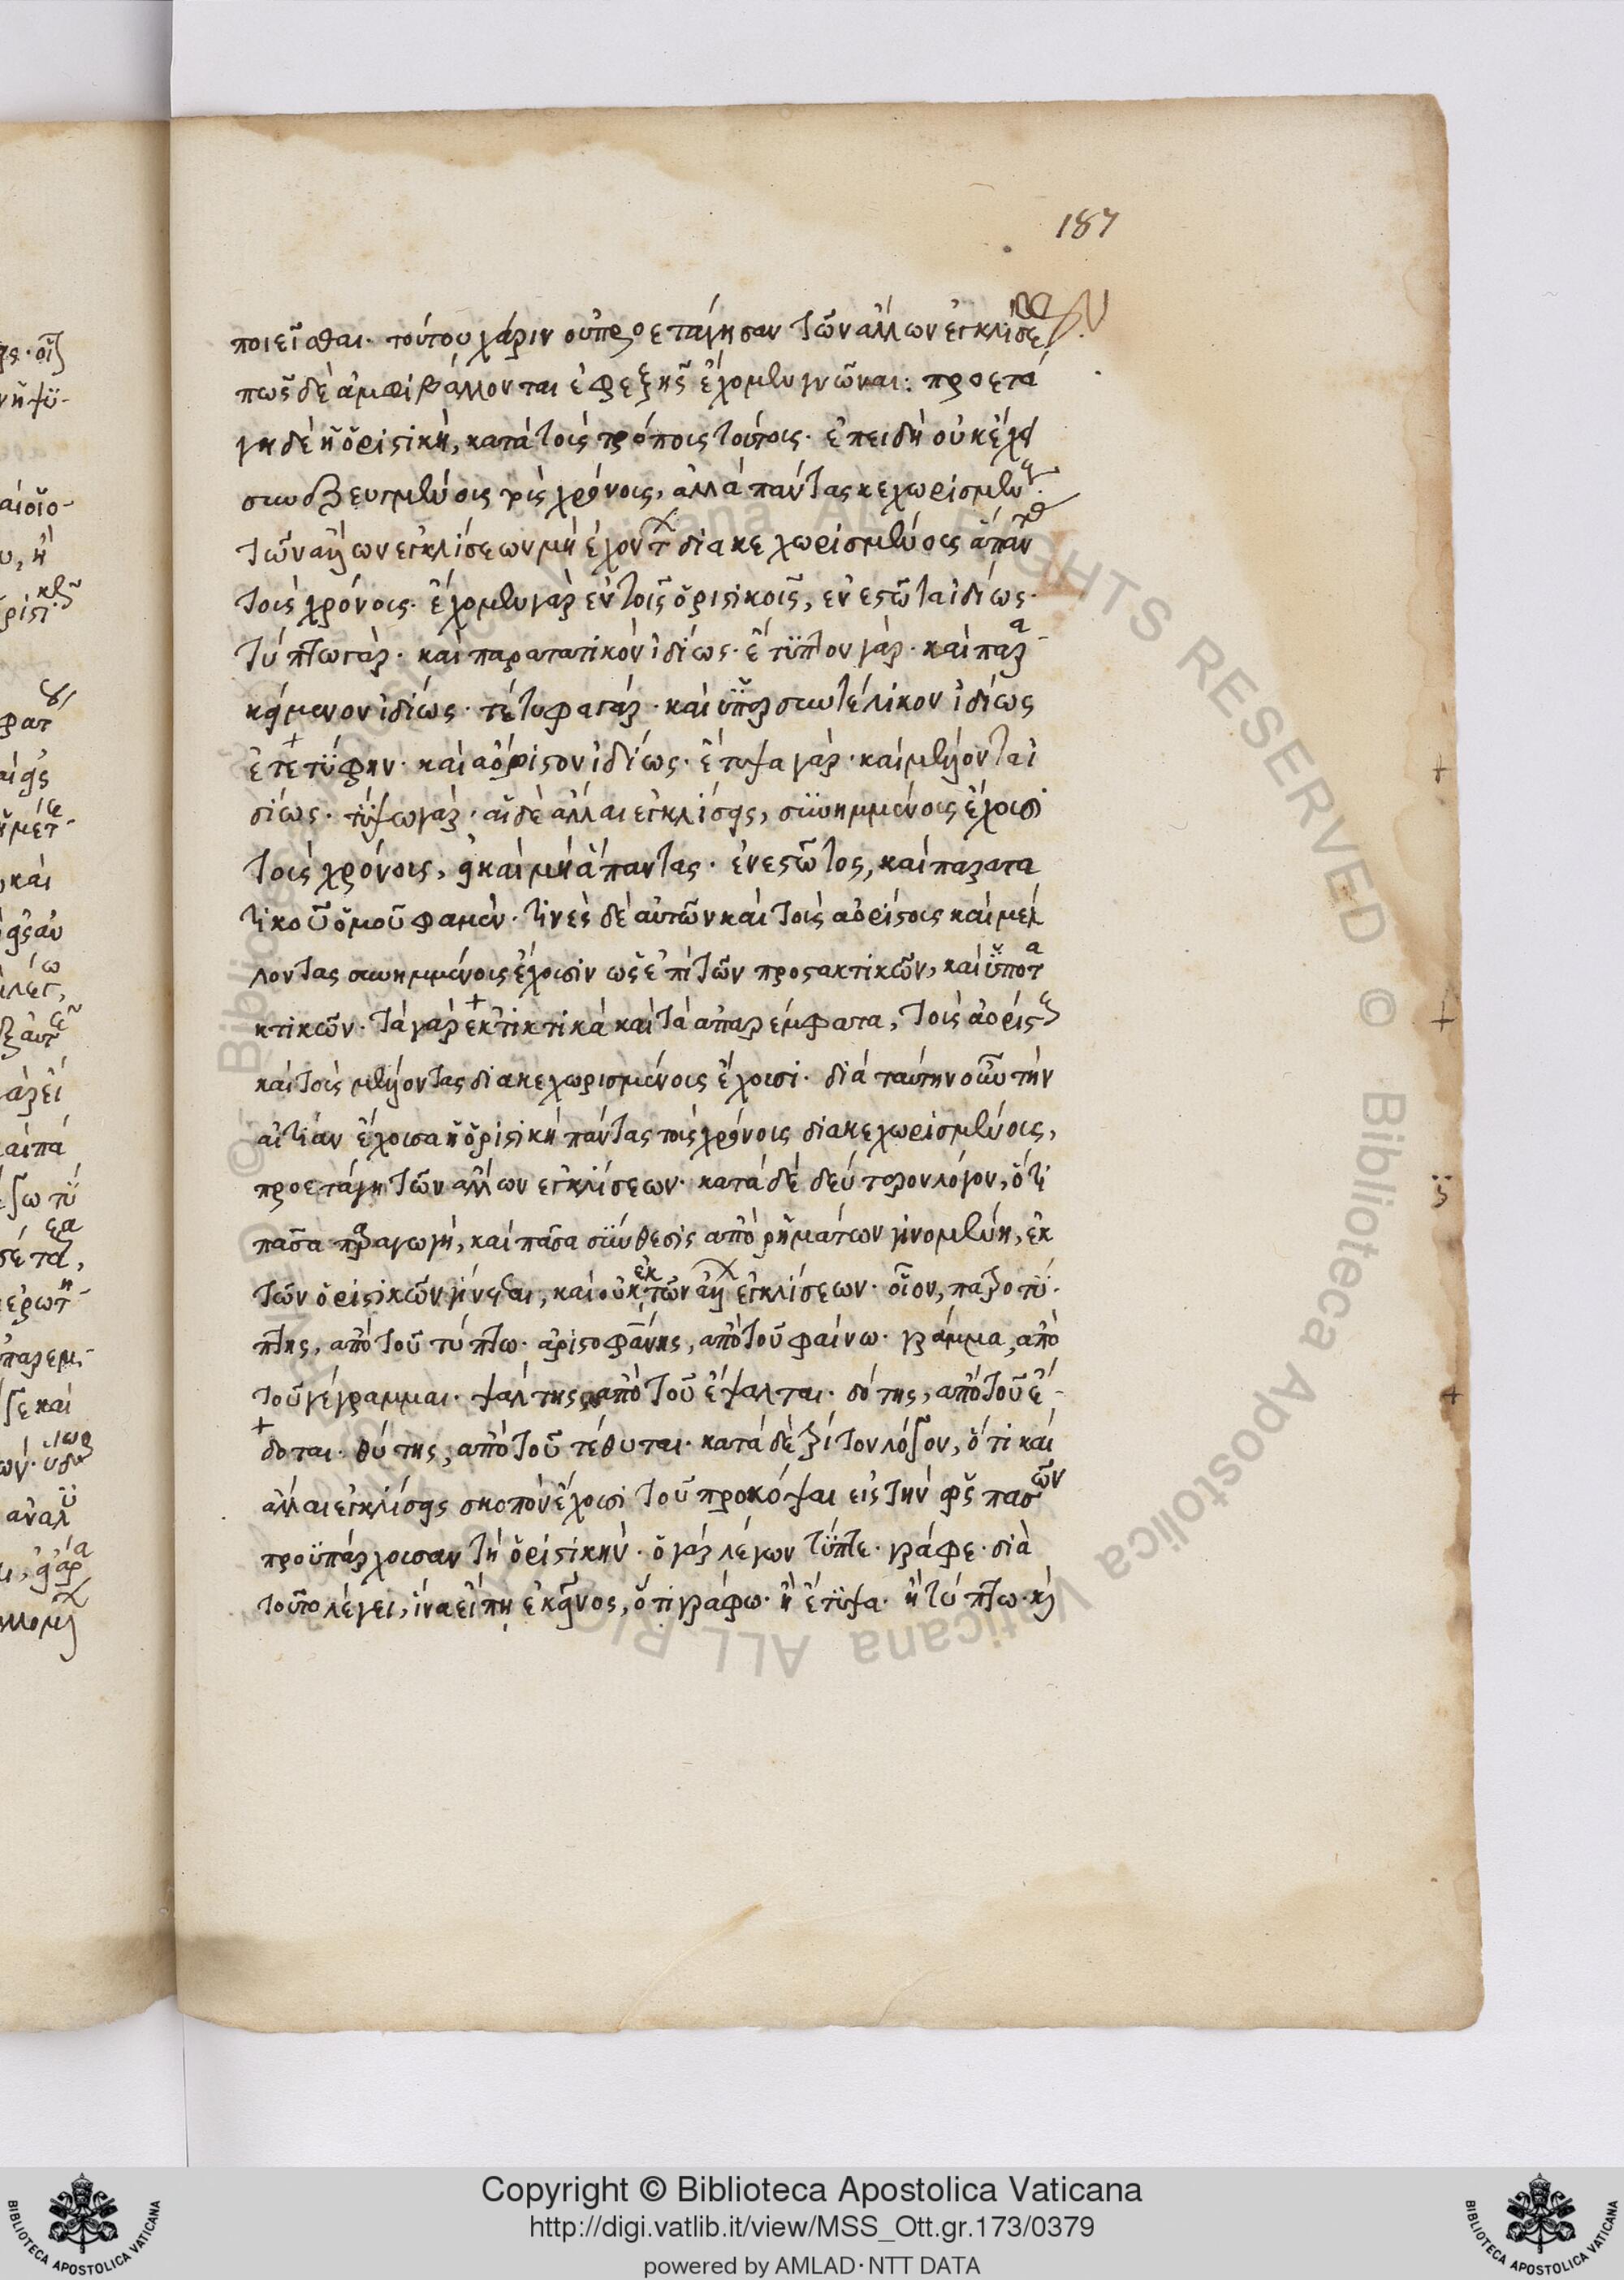 187
ποιεῖσθαι· τούτου χάριν οὐ προετάγησαν τῶν ἄλλων ἐγκλίσεων·
πῶς δὲ ἀμφιβάλλονται ἐφεξῆς ἔχομεν γνῶναι: προετά
γη δὲ ἡ ὁριστικὴ, κατὰ τοὺς τρόπους τούτους· ἐπειδὴ οὐκ ἔχει
συνεζευγμένους τοὺς χρόνους, ἀλλὰ πάντας κεχωρισμένους·
τῶν ἄλλων ἐγκλίσεων μὴ ἔχοντων διακεχωρισμένους ἅπαντας
τοὺς χρόνους· ἔχομεν γὰρ ἐν τοῖς ὁριστικοῖς, ἐνεστῶτα ἰδίως·
τύπτω γὰρ· καὶ παρατατικὸν ἰδίως· ἔτυπτον γὰρ· καὶ παρα
κείμενον ἰδίως· τέτυφα γὰρ· καὶ ὑπερσυντέλικον ἰδίως
ἐτετύφην· καὶ ἀόριστον ἰδίως· ἔτυψα γὰρ· καὶ μέλλοντα ἰ
δίως· τύψω γὰρ· αἱ δὲ ἄλλαι ἐγκλίσεις, συνημμένους ἔχουσι
τοὺς χρόνους, εἰ καὶ μὴ ἅπαντας· ἐνεστῶτος, καὶ παρατα
τικοῦ ὁμοῦ φαμὲν· τινὲς δὲ αὐτῶν καὶ τοὺς ἀορίστους καὶ μέλ
λοντας συνημμένους ἔχουσιν ὡς ἐπὶ τῶν προστακτικῶν, καὶ ὑποτα
κτικῶν· τὰ γὰρ εὐκτικτικὰ καὶ τὰ ἀπαρέμφατα, τοὺς ἀορίστους
καὶ τοὺς μέλλοντας διακεχωρισμένους ἔχουσι· διὰ ταύτην οὖν τὴν
αἰτίαν ἔχουσα ἡ ὁριστικὴ πάντας τοὺς χρόνους διακεχωρισμένους,
προετάγη τῶν ἄλλων ἐγκλίσεων· κατὰ δὲ δεύτερον λόγον, ὅτι
πᾶσα παραγωγὴ, καὶ πᾶσα σύνθεσις ἀπὸ ῥημάτων γινομένη, ἐκ
τῶν ὁριστικῶν γίνεται, καὶ οὐκ ἐκ τῶν ἄλλων ἐγκλίσεων· οἷον, πατροτύ
πτης, ἀπὸ τοῦ τύπτω· ἀριστοφάνης, ἀπὸ τοῦ φαίνω· γράμμα, ἀπὸ
τοῦ γέγραμμαι· ψάλτης, ἀπὸ τοῦ ἔψαλται· δότης, ἀπὸ τοῦ ἔ
δοται· θύτης, ἀπὸ τοῦ τέθυται· κατὰ δὲ τρίτον λόγον, ὅτι καὶ
ἄλλαι ἐγκλίσεις σκοπὸν ἔχουσι τοῦ προκόψαι εἰς τὴν πασῶν
προϋπάρχουσαν τὴν ὁριστικήν· ὁ γὰρ λέγων τύπτε· γράφε· διὰ
τοῦτο λέγει, ἵνα εἴπῃ ἐκεῖνος, ὅτι γράφω· ἢ ἔτυψα· ἢ τύπτω· καὶ
Copyright © Biblioteca Apostolica Vaticana
http://digi.vatlib.it/view/MSS_Ott.gr.173/0379
powered by AMLAD·NTT DATA